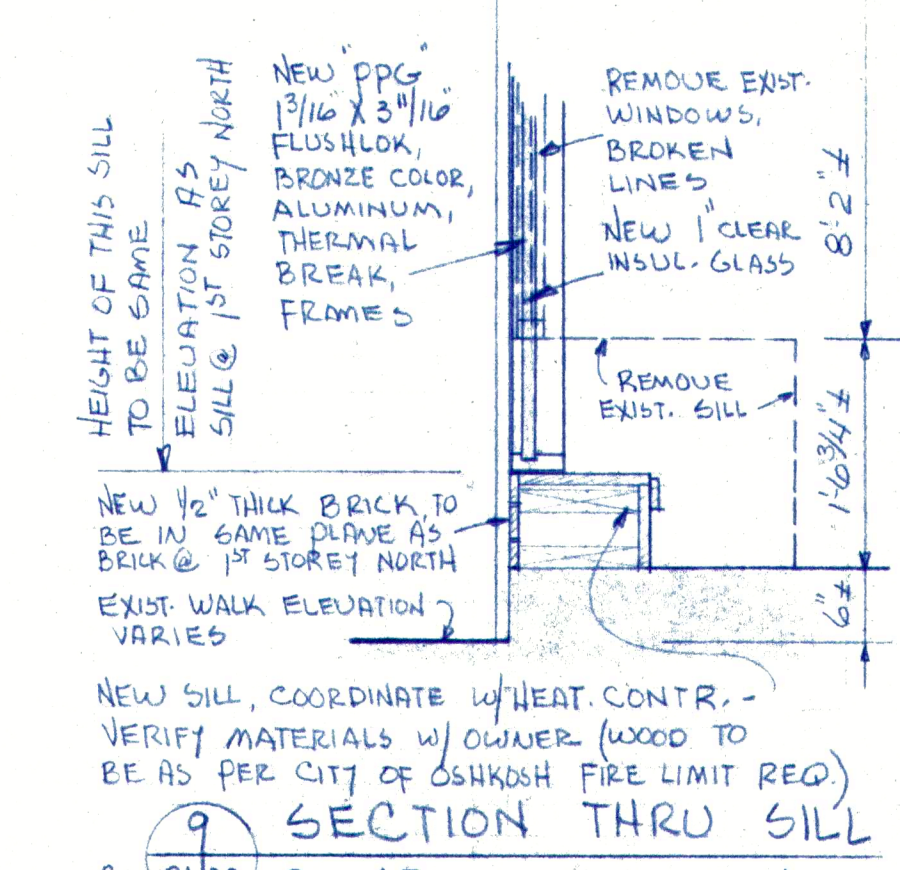 HEIGHT OF THIS SILL
TO BE SAME
ELEVATION AS
SILL @ 1ST STOREY NORTH
NEW "PPG"
1 3/16" X 3 11/16"
FLUSHLOK,
BRONZE COLOR,
ALUMINUM,
THERMAL
BREAK,
FRAMES
REMOVE EXIST.
WINDOWS,
BROKEN
LINES
NEW 1" CLEAR
INSUL. GLASS
8'-2"±
REMOVE
EXIST. SILL
1'-6 3/4"±
6"±
NEW 1/2" THICK BRICK, TO
BE IN SAME PLANE AS
BRICK @ 1ST STOREY NORTH
EXIST. WALK ELEVATION
VARIES
NEW SILL, COORDINATE W/HEAT. CONTR. -
VERIFY MATERIALS W/ OWNER (WOOD TO
BE AS PER CITY OF OSHKOSH FIRE LIMIT REQ.)
9
SECTION THRU SILL